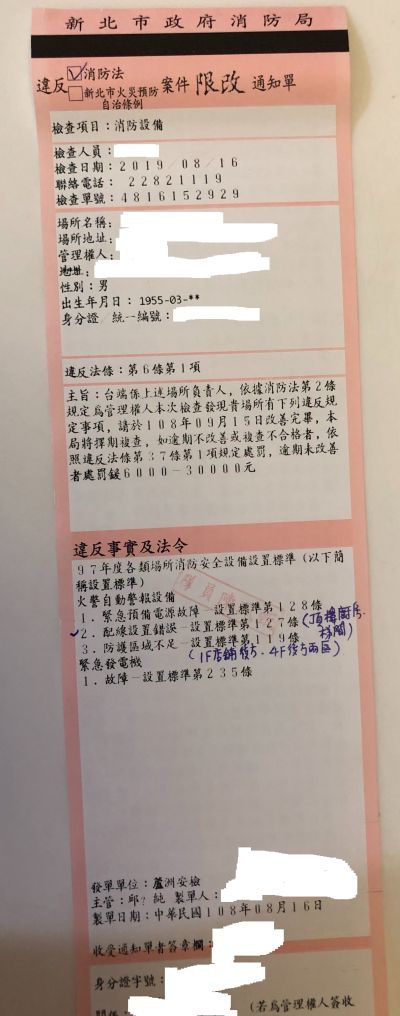 新北市政府消防局
違反 ☑消防法 □新北市火災預防自治條例 案件 限改 通知單
檢查項目：消防設備
檢查人員：
檢查日期：2019／08／16
聯絡電話： 22821119
檢查單號：4816152929
場所名稱：
場所地址：
管理權人：
地址：
性別：男
出生年月日： 1955-03-**
身分證／統一編號：
違反法條：第6條第1項
主旨：台端係上述場所負責人，依據消防法第2條
規定為管理權人本次檢查發現貴場所有下列違反規
定事項，請於108年09月15日改善完畢，本
局將擇期複查，如逾期不改善或複查不合格者，依
照違反法條第37條第1項規定處罰，逾期未改善
者處罰鍰6000－30000元
違反事實及法令
97年度各類場所消防安全設備設置標準（以下簡
稱設置標準）
火警自動警報設備
1．緊急預備電源故障－設置標準第128條
✓2．配線設置錯誤－設置標準第127條 (頂樓廚房、梯間)
3．防護區域不足－設置標準第119條
(1F店鋪後方、4F後方兩區)
緊急發電機
1．故障－設置標準第235條
發單單位：蘆洲安檢
主管：邱?純 製單人：
製單日期：中華民國108年08月16日
收受通知單者簽章欄：
身分證字號：
(若為管理權人簽收